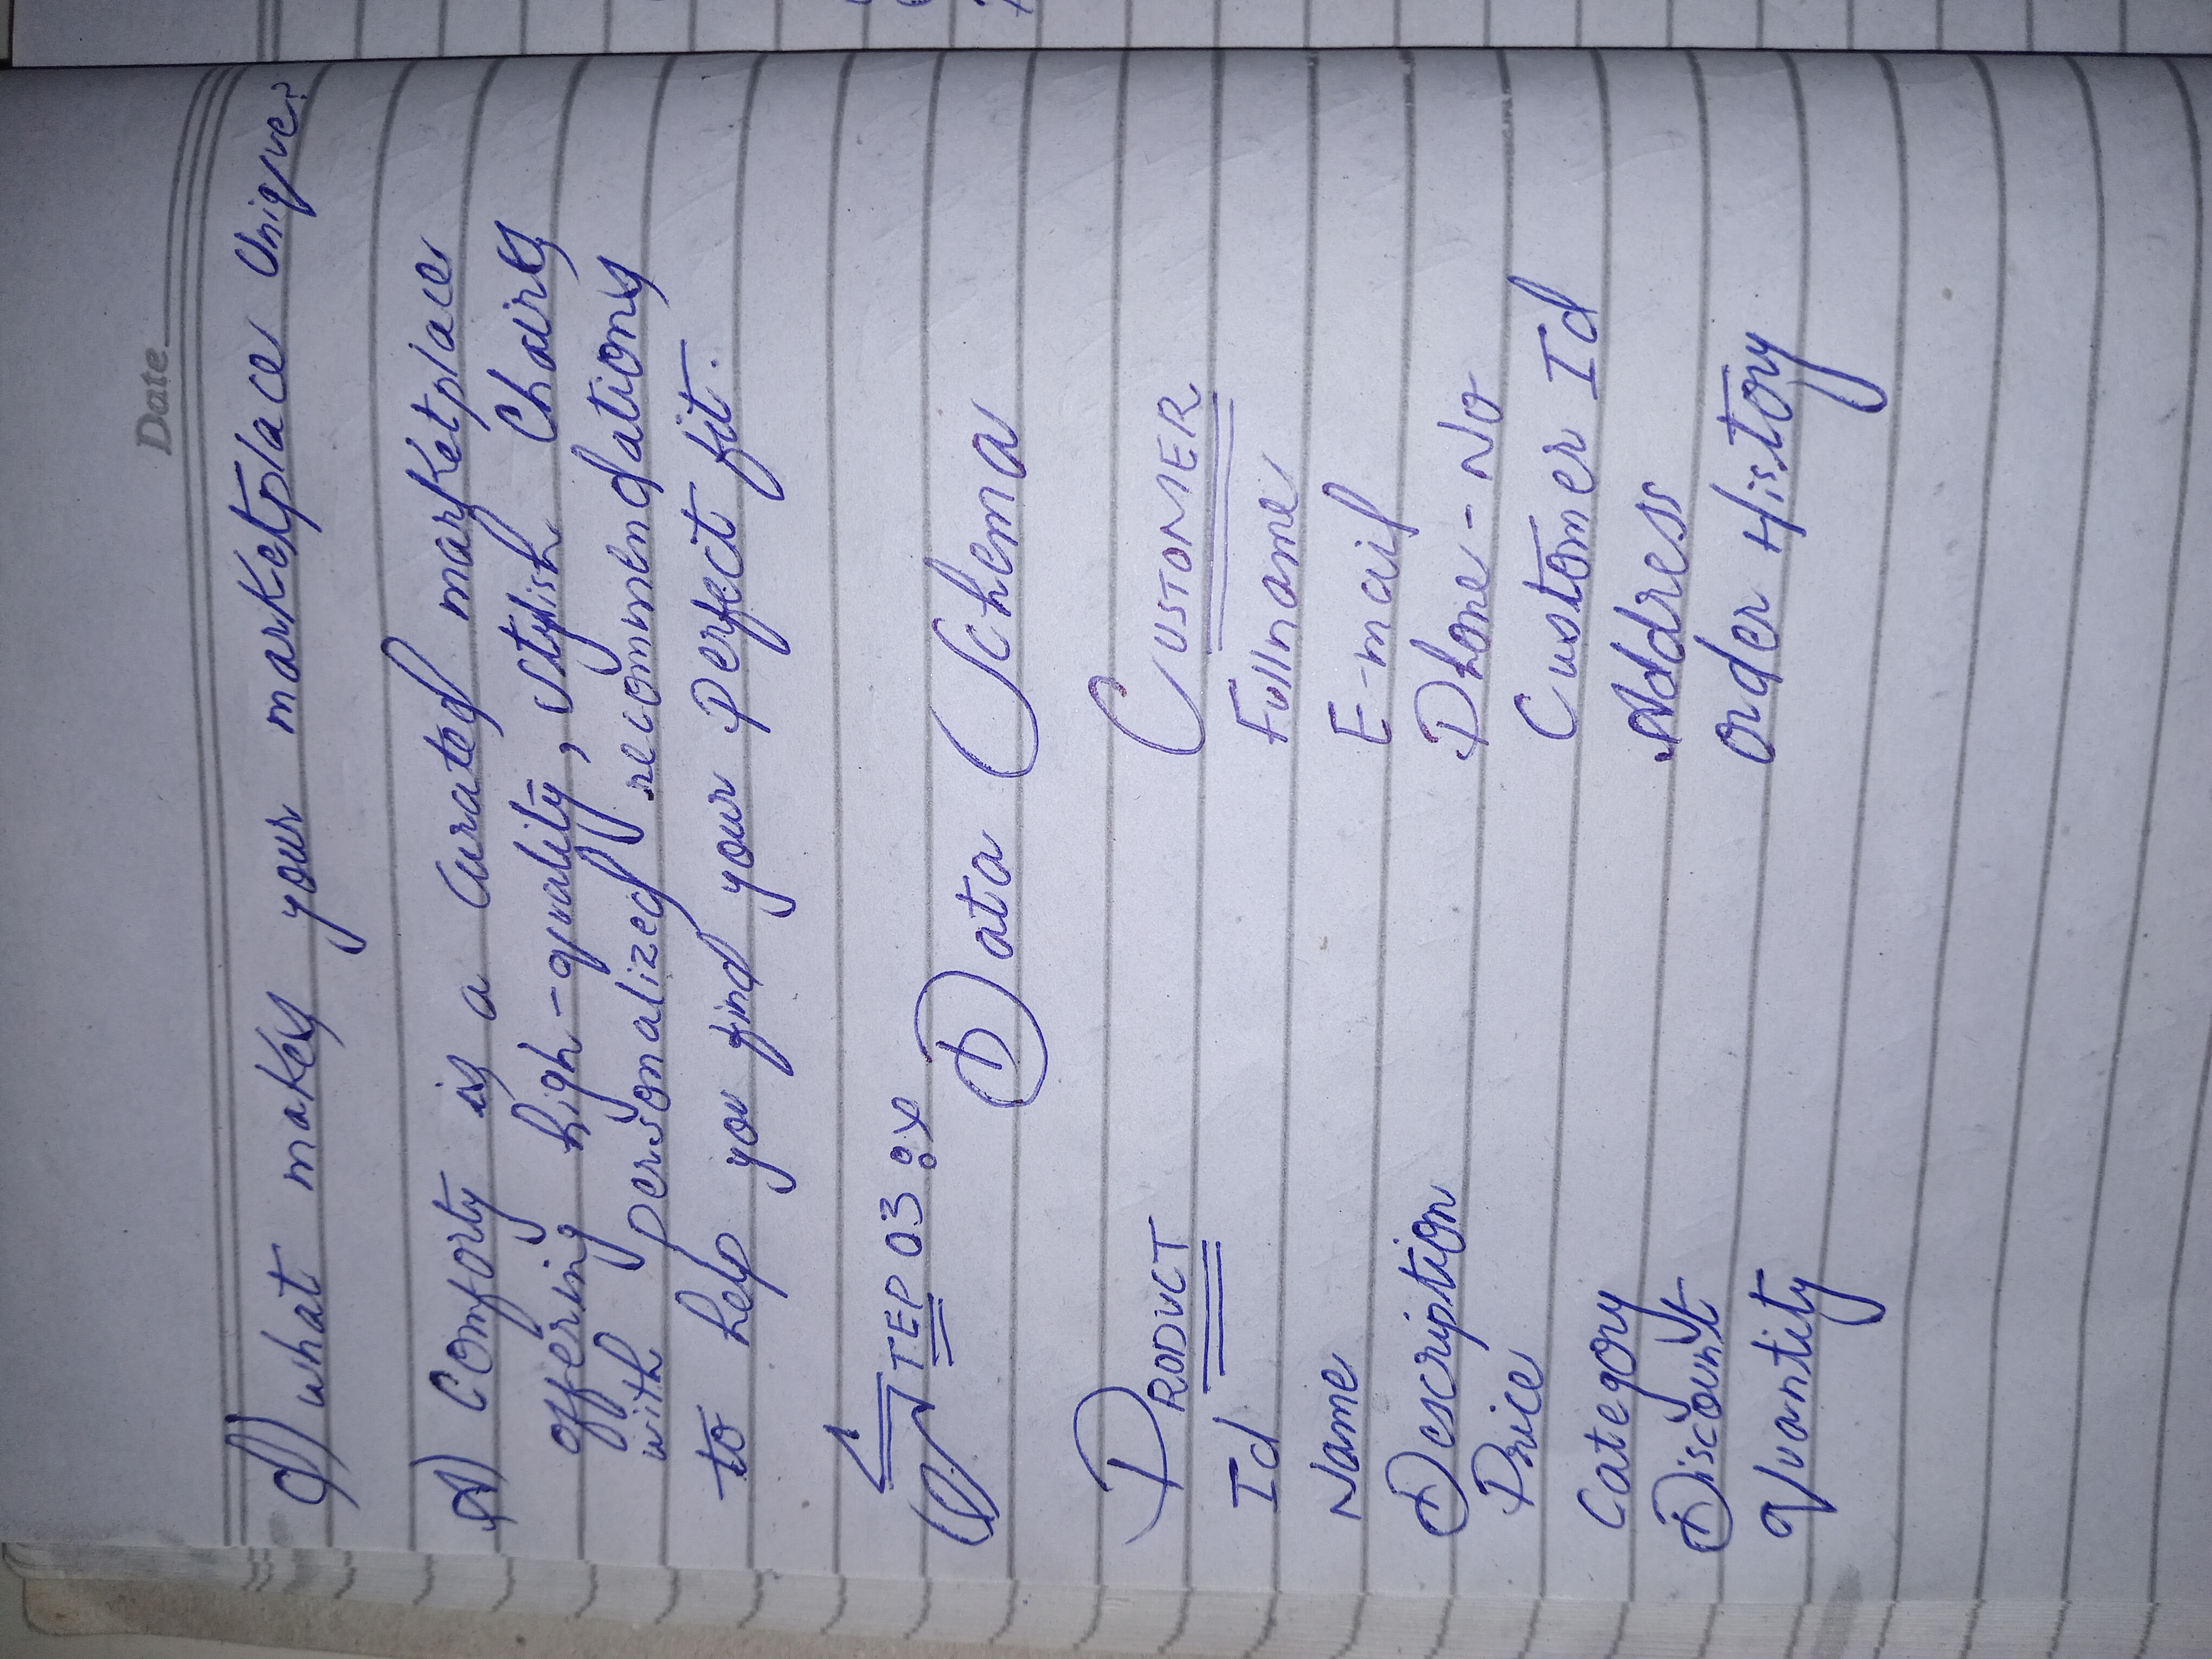 Date
Q) what makes your marketplace Unique?
A) Comforty is a Curated marketplace
offering high-quality, Stylish Chairs
with personalized recommendations
to help you find your Perfect fit.
STEP 03 :
Data Schema
PRODUCT
Id
Name
Description
Price
Category
Discount
Quantity
CUSTOMER
Fullname
E-mail
Phone-No
Customer Id
Address
Order History